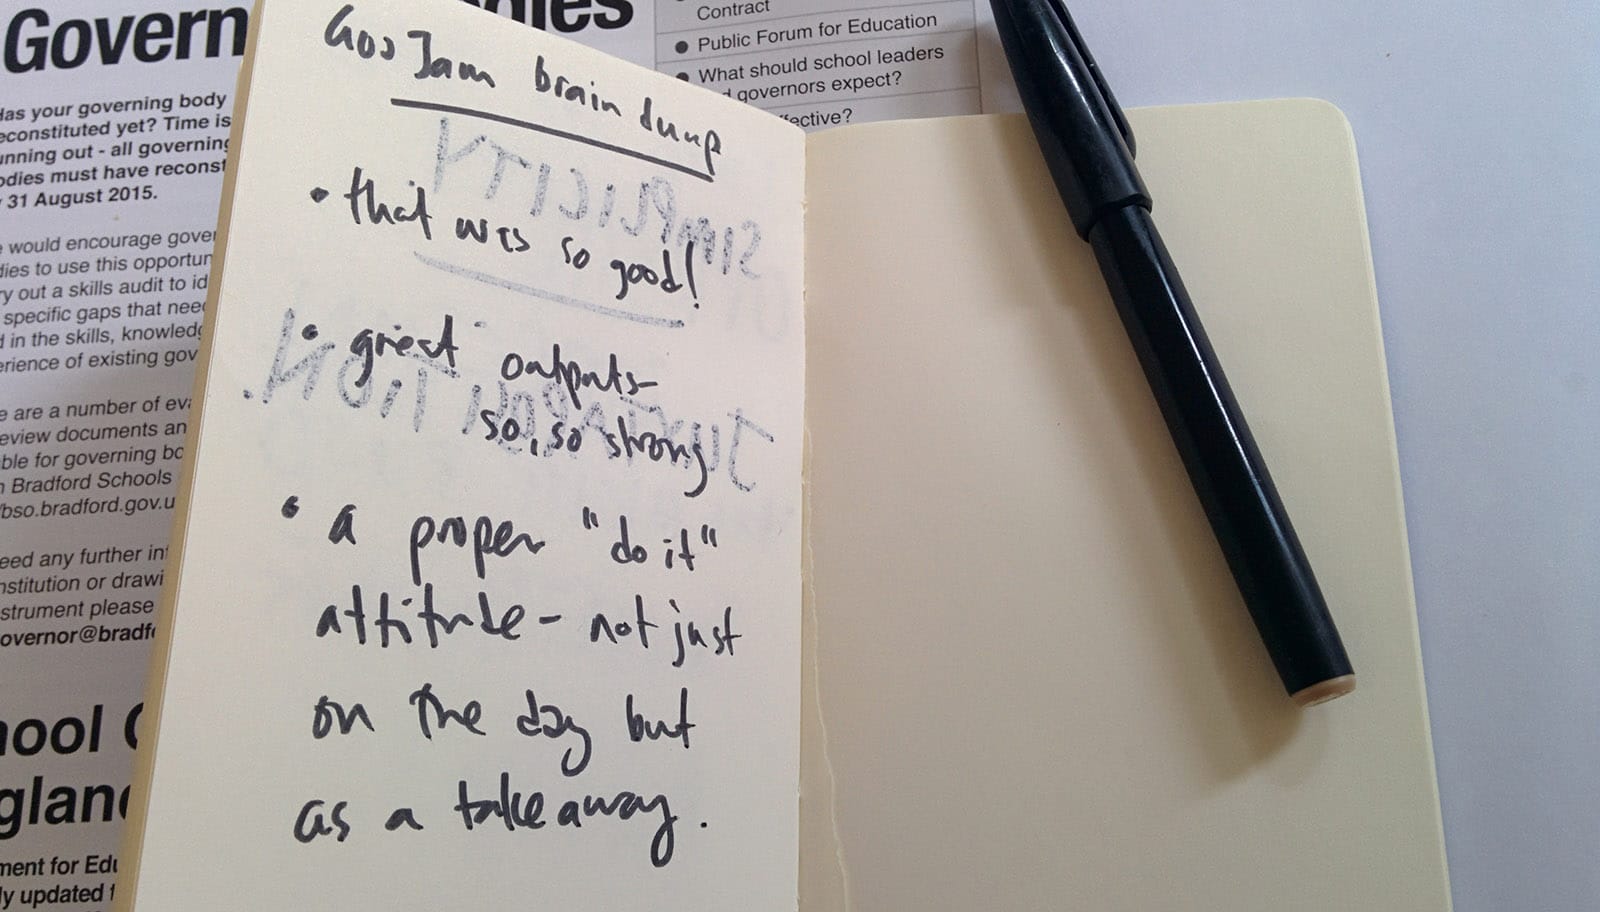 Govern
dies
Has your governing body
reconstituted yet? Time is
running out - all governing
bodies must have reconst
31 August 2015.
would encourage gover
dies to use this opportun
ry out a skills audit to id
specific gaps that need
d in the skills, knowledg
erience of existing gov
e are a number of eva
eview documents an
ble for governing bo
n Bradford Schools
/bso.bradford.gov.u
eed any further inf
nstitution or drawi
strument please
overnor@bradfo
hool
gland
ment for Edu
ly updated t
Contract
• Public Forum for Education
• What should school leaders
d governors expect?
ffective?
GovJam brain dump
• that was so good!
• great outputs-
so, so strong
• a proper "do it"
attitude - not just
on the day but
as a takeaway.
SIMPLICITY
JUXTAPOSITION.